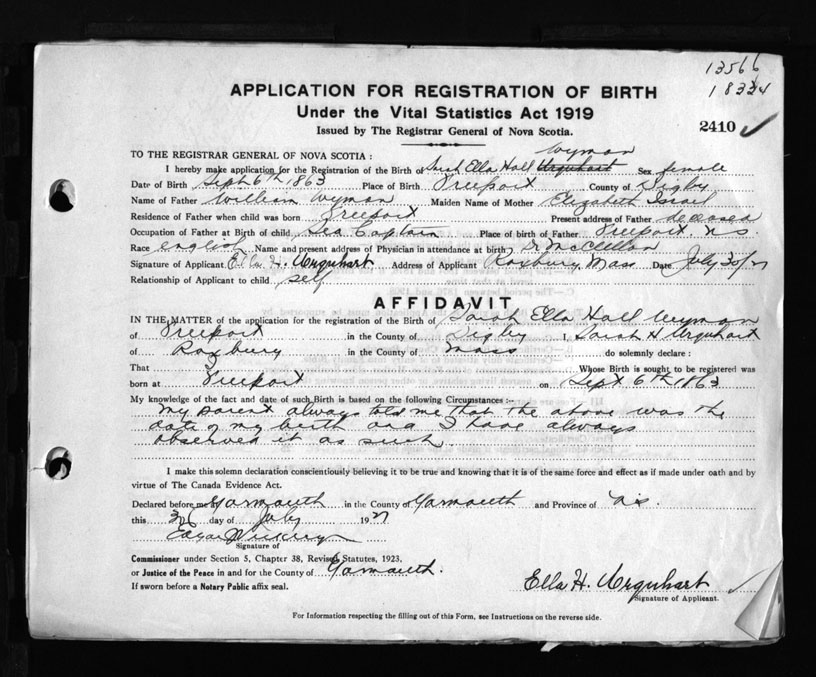 13566
18334
APPLICATION FOR REGISTRATION OF BIRTH
Under the Vital Statistics Act 1919
Issued by The Registrar General of Nova Scotia.
2410
Wyman
TO THE REGISTRAR GENERAL OF NOVA SCOTIA:
I hereby make application for the Registration of the Birth of Sarah Ella Hall Urquhart Sex female
Date of Birth Sept 6th 1863 Place of Birth Freeport County of Digby
Name of Father William Wyman Maiden Name of Mother Elizabeth Israel
Residence of Father when child was born Freeport Present address of Father deceased
Occupation of Father at Birth of child Sea Captain Place of birth of Father Freeport. N.S.
Race english Name and present address of Physician in attendance at birth Dr McClellan
Signature of Applicant Ella H. Urquhart Address of Applicant Roxbury Mass Date July 30/27
Relationship of Applicant to child self
AFFIDAVIT
IN THE MATTER of the application for the registration of the Birth of Sarah Ella Hall Wyman
of Freeport in the County of Digby I, Sarah H Urquhart
of Roxbury in the County of Mass do solemnly declare:
That I Whose Birth is sought to be registered was
born at Freeport on Sept 6th 1863
My knowledge of the fact and date of such Birth is based on the following Circumstances:-
My parent always told me that the above was the
date of my birth and I have always
observed it as such.
I make this solemn declaration conscientiously believing it to be true and knowing that it is of the same force and effect as if made under oath and by
virtue of The Canada Evidence Act.
Declared before me Yarmouth in the County of Yarmouth and Province of N.S.
this 30 day of July 1927
Signature of
Commissioner under Section 5, Chapter 38, Revised Statutes, 1923,
or Justice of the Peace in and for the County of Yarmouth.
If sworn before a Notary Public affix seal.
Ella H. Urquhart
Signature of Applicant.
For Information respecting the filling out of this Form, see Instructions on the reverse side.